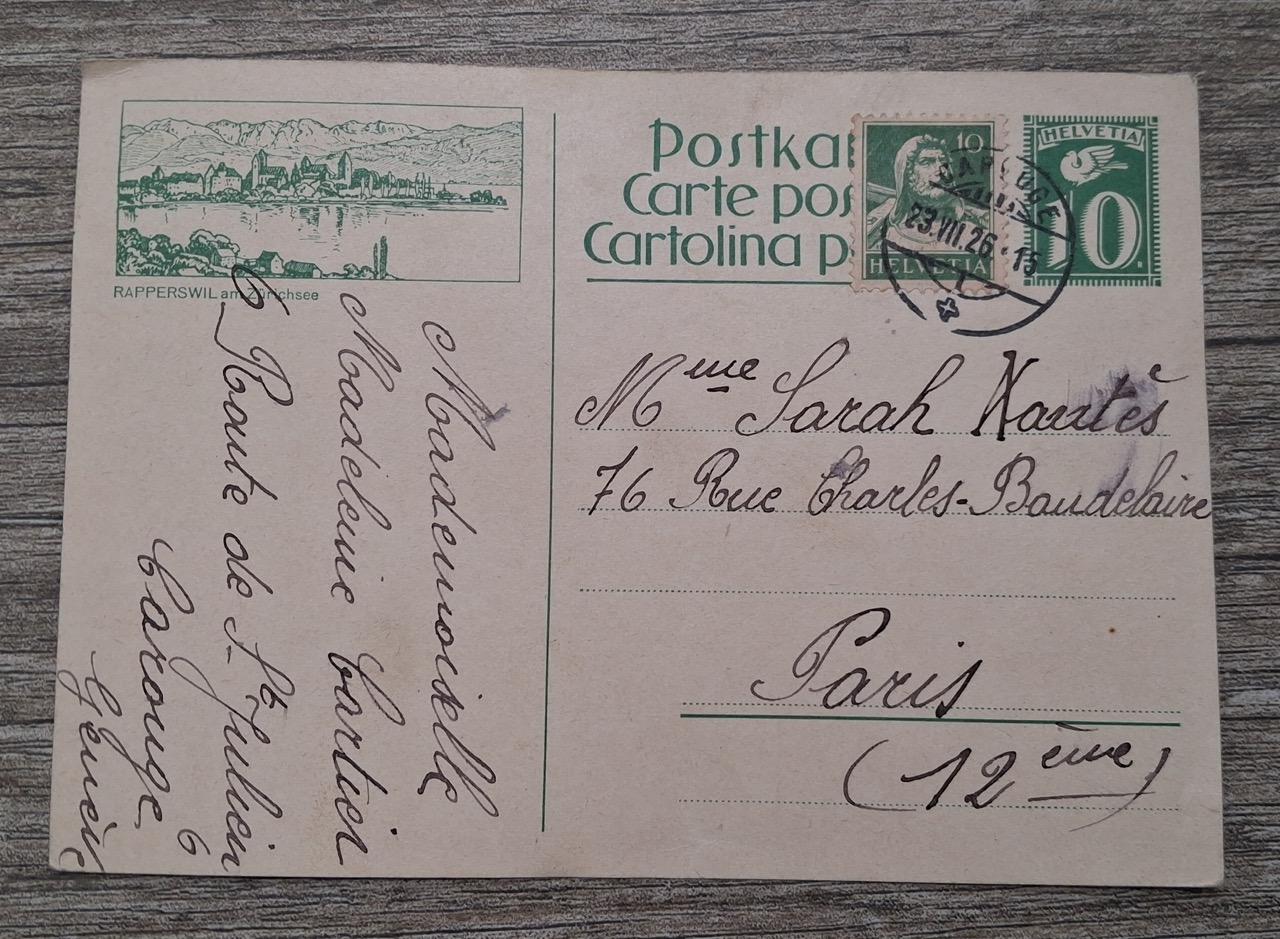 RAPPERSWIL am Zürichsee
Postka
Carte pos
Cartolina p
10
HELVETIA
CAROUGE
23.VII.26.-15
HELVETIA
10
Mme Sarah
76 Rue Charles-Baudelaire
Paris
(12ème)
Mademoiselle
Madeleine Cartier
6 Route de St Julien 6
Carouge
Genève